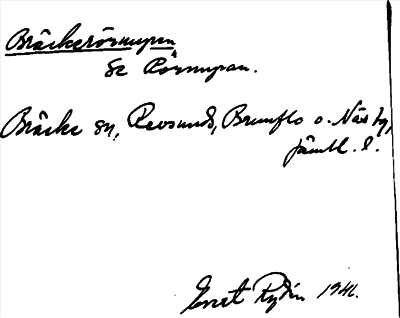 Bräckerörmupen
Se Rörmupan.
Bräcke sn, Revsunds, Brunflo o. Näs tg,
Jämtl. l.
Ernst Rydén 1941.